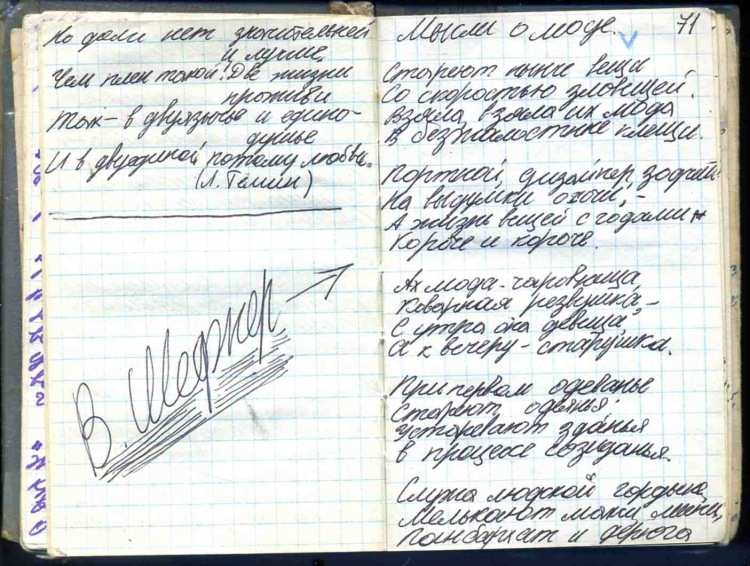 Но доли нет значительней
и лучше,
Чем плен такой! Две жизни
прожиты
Так - в двуязычье и едино-
душье
И в двуединой потому любви.
(Л. Темин)
В. Шефнер →
Мысли о моде.
71
Стареют ныне вещи
Со скоростью зловещей.
Взяла, взяла их мода
В безжалостные клещи.
Портной, дизайнер, зодчий
На выдумки охочи, -
А жизнь вещей с годами
Короче и короче.
Ах мода - чаровница,
Коварная резвушка, -
С утра она девица,
А к вечеру - старушка.
При первом одеванье
Стареют одеянья.
Устаревают зданья
в процессе созиданья.
Служа людской гордыне,
Мелькают макси, мини,
Панбархат и дерюга